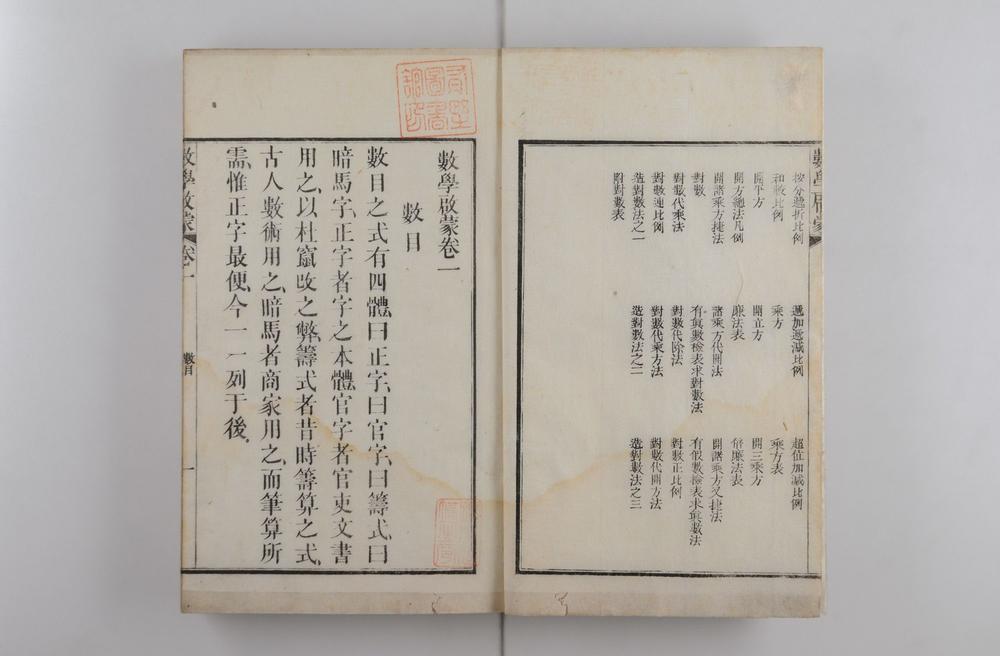 數學啟蒙
按分遞折比例 遞加遞減比例 超位加減比例
和較比例 乘方 乘方表
開平方 開立方 開三乘方
開方總法凡例 廉法表
開諸乘方捷法 諸乘方代開法 開諸乘方又捷法
對數 有眞數檢表求對數法 有似數檢表求眞數法
對數代乘法 對數代除法 對數正比例
對數連比例 對數代乘方法 對數代開方法
造對數法之一 造對數法之二 造對數法之三
附對數表
數學啟蒙卷一
數目
數目之式有四體、曰正字、曰官字、曰籌式、曰
暗馬字、正字者字之本體、官字者官吏文書
用之、以杜竄改之弊、籌式者昔時籌算之式、
古人數術用之、暗馬者商家用之、而筆算所
需、惟正字最便、今一一列于後。
數學啟蒙 卷一 數目 一